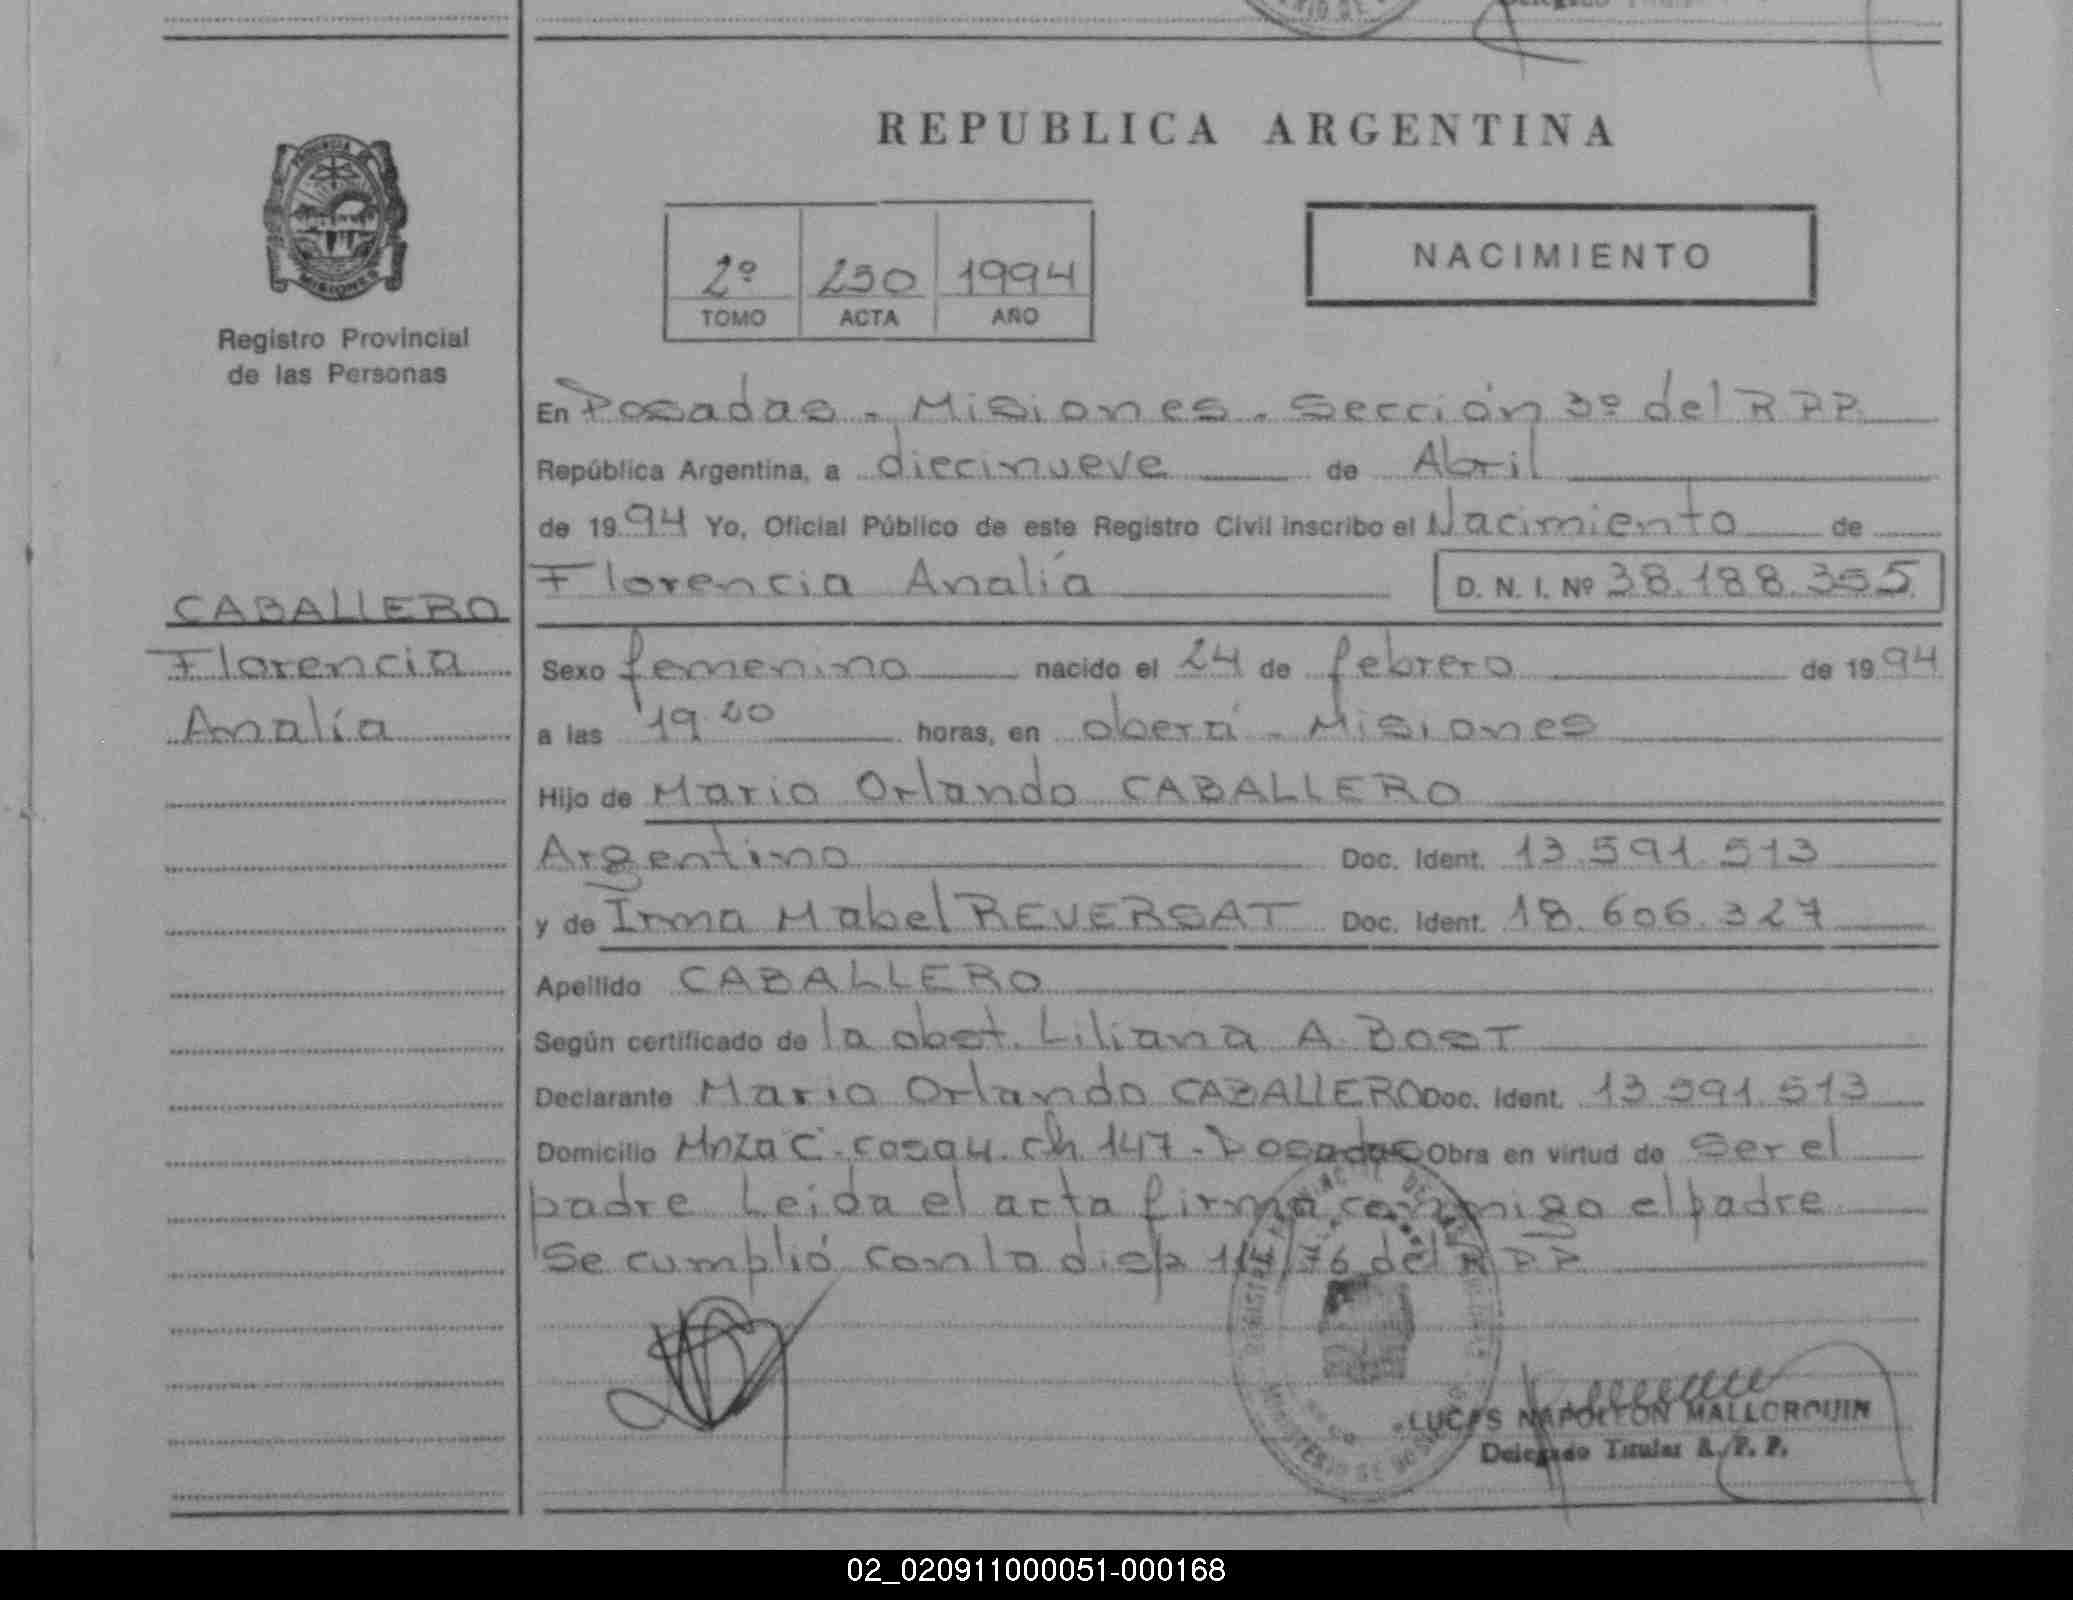 REPUBLICA ARGENTINA
NACIMIENTO
2º 250 1994
TOMO ACTA AÑO
PROVINCIA DE MISIONES
Registro Provincial
de las Personas
CABALLERO
Florencia
Analía
En Posadas - Misiones - Sección 3º del RPP
República Argentina, a diecinueve de Abril
de 1994 Yo, Oficial Público de este Registro Civil inscribo el Nacimiento de
Florencia Analía D. N. I. Nº 38.188.355
Sexo femenino nacido el 24 de febrero de 1994
a las 19.20 horas, en oberá - Misiones
Hijo de Mario Orlando CABALLERO
Argentino Doc. Ident. 13.591.513
y de Irma Mabel REVERSAT Doc. Ident. 18.606.327
Apellido CABALLERO
Según certificado de la obst. Liliana A. BOST
Declarante Mario Orlando CABALLERO Doc. Ident. 13.591.513
Domicilio Mnza C - casa 4. ch. 147 - Posadas Obra en virtud de ser el
padre Leida el acta firma conmigo el padre
Se cumplió con la disp 117/76 del RPP
LUCAS NAPOLEON MALLORQUIN
Delegado Titular R. P. P.
02_020911000051-000168